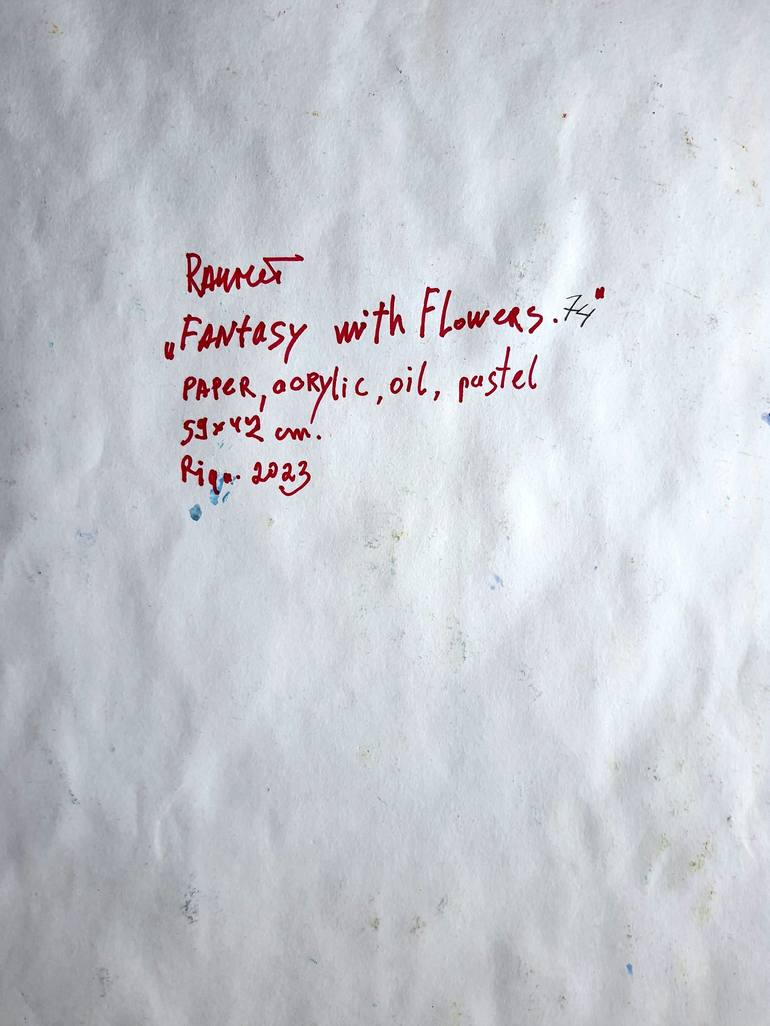 „Fantasy with Flowers. 74"
PAPER, acrylic, oil, pastel
59x42 cm.
Riga. 2023